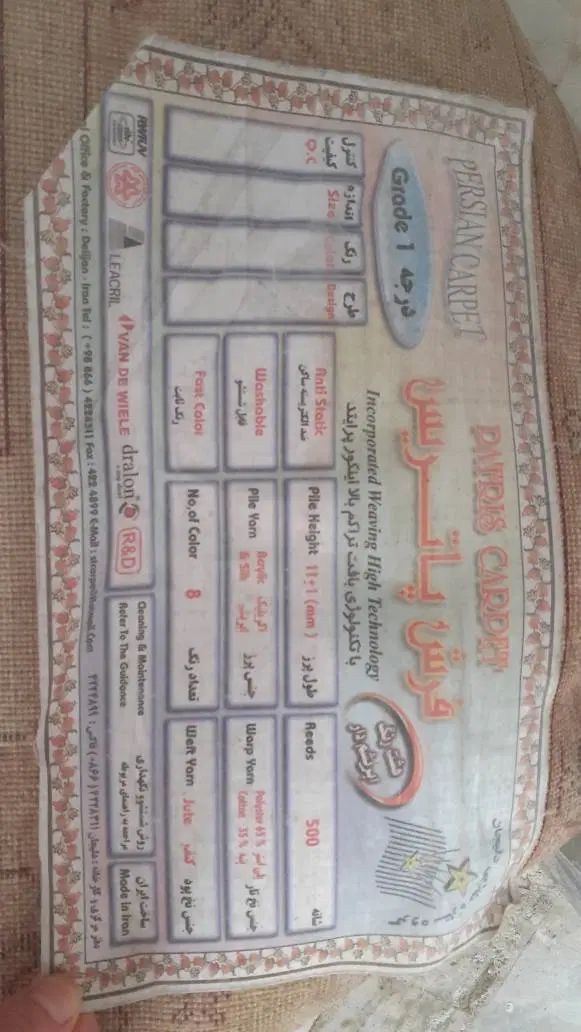 PERSIAN CARPET
PATRIS CARPET
فرش پاتریس
درجه 1 Grade
Incorporated Weaving High Technology
با تکنولوژی بافت تراکم بالا اینکور پرایتد
هشت رنگ
کنترل کیفیت Q.C
اندازه Size
رنگ Color
طرح Design
Anti Static
ضد الکتریسته ساکن
Washable
قابل شستشو
Fast Color
رنگ ثابت
Pile Height 11±1 (mm) طول پرز
Pile Yarn Acrylic & Silk اکریلیک جنس پرز
No,of Color 8 تعداد رنگ
Reeds 500 شانه
Warp Yarn Polyster 65 % پلی استر جنس نخ تار
Cotton 35 % پنبه
Weft Yarn Jute کنف جنس نخ پود
RWTUV
LEACRIL
VAN DE WIELE
dralon
R&D
Cleaning & Maintenance
Refer To The Guidance
روش شستشو و نگهداری
مراجعه به راهنمای مربوطه
ساخت ایران
Made In Iran
Office & Factory : Delijan - Iran Tel : (+98 866) 4224311 Fax : 422 4899 E-Mail :
دفتر مرکزی و کارخانه : دلیجان